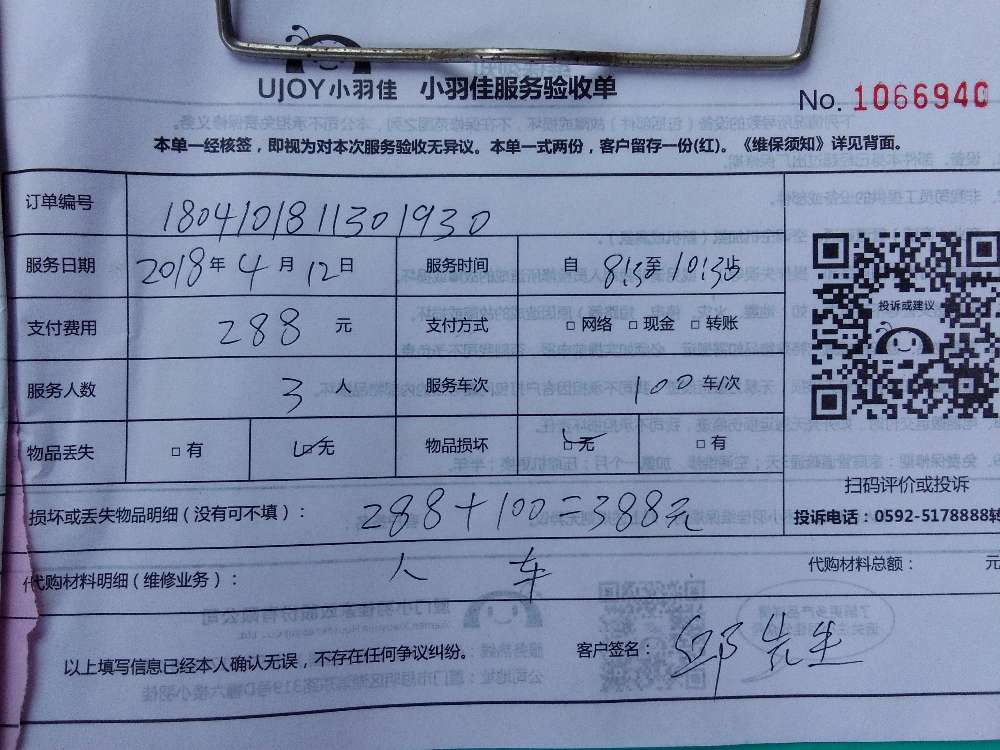 UJOY小羽佳 小羽佳服务验收单
No. 1066940
本单一经核签，即视为对本次服务验收无异议。本单一式两份，客户留存一份(红)。《维保须知》详见背面。
订单编号 1804101811301930
服务日期 2018年4月12日 服务时间 自 8:13至10:13止
支付费用 288 元 支付方式 □网络 □现金 □转账
服务人数 3 人 服务车次 100 车/次
物品丢失 □有 ☑无 物品损坏 ☑无 □有
投诉或建议
扫码评价或投诉
损坏或丢失物品明细（没有可不填）： 288+100=388元
投诉电话：0592-5178888转
代购材料明细（维修业务）： 人 车 代购材料总额： 元
以上填写信息已经本人确认无误，不存在任何争议纠纷。 客户签名： 邱先生